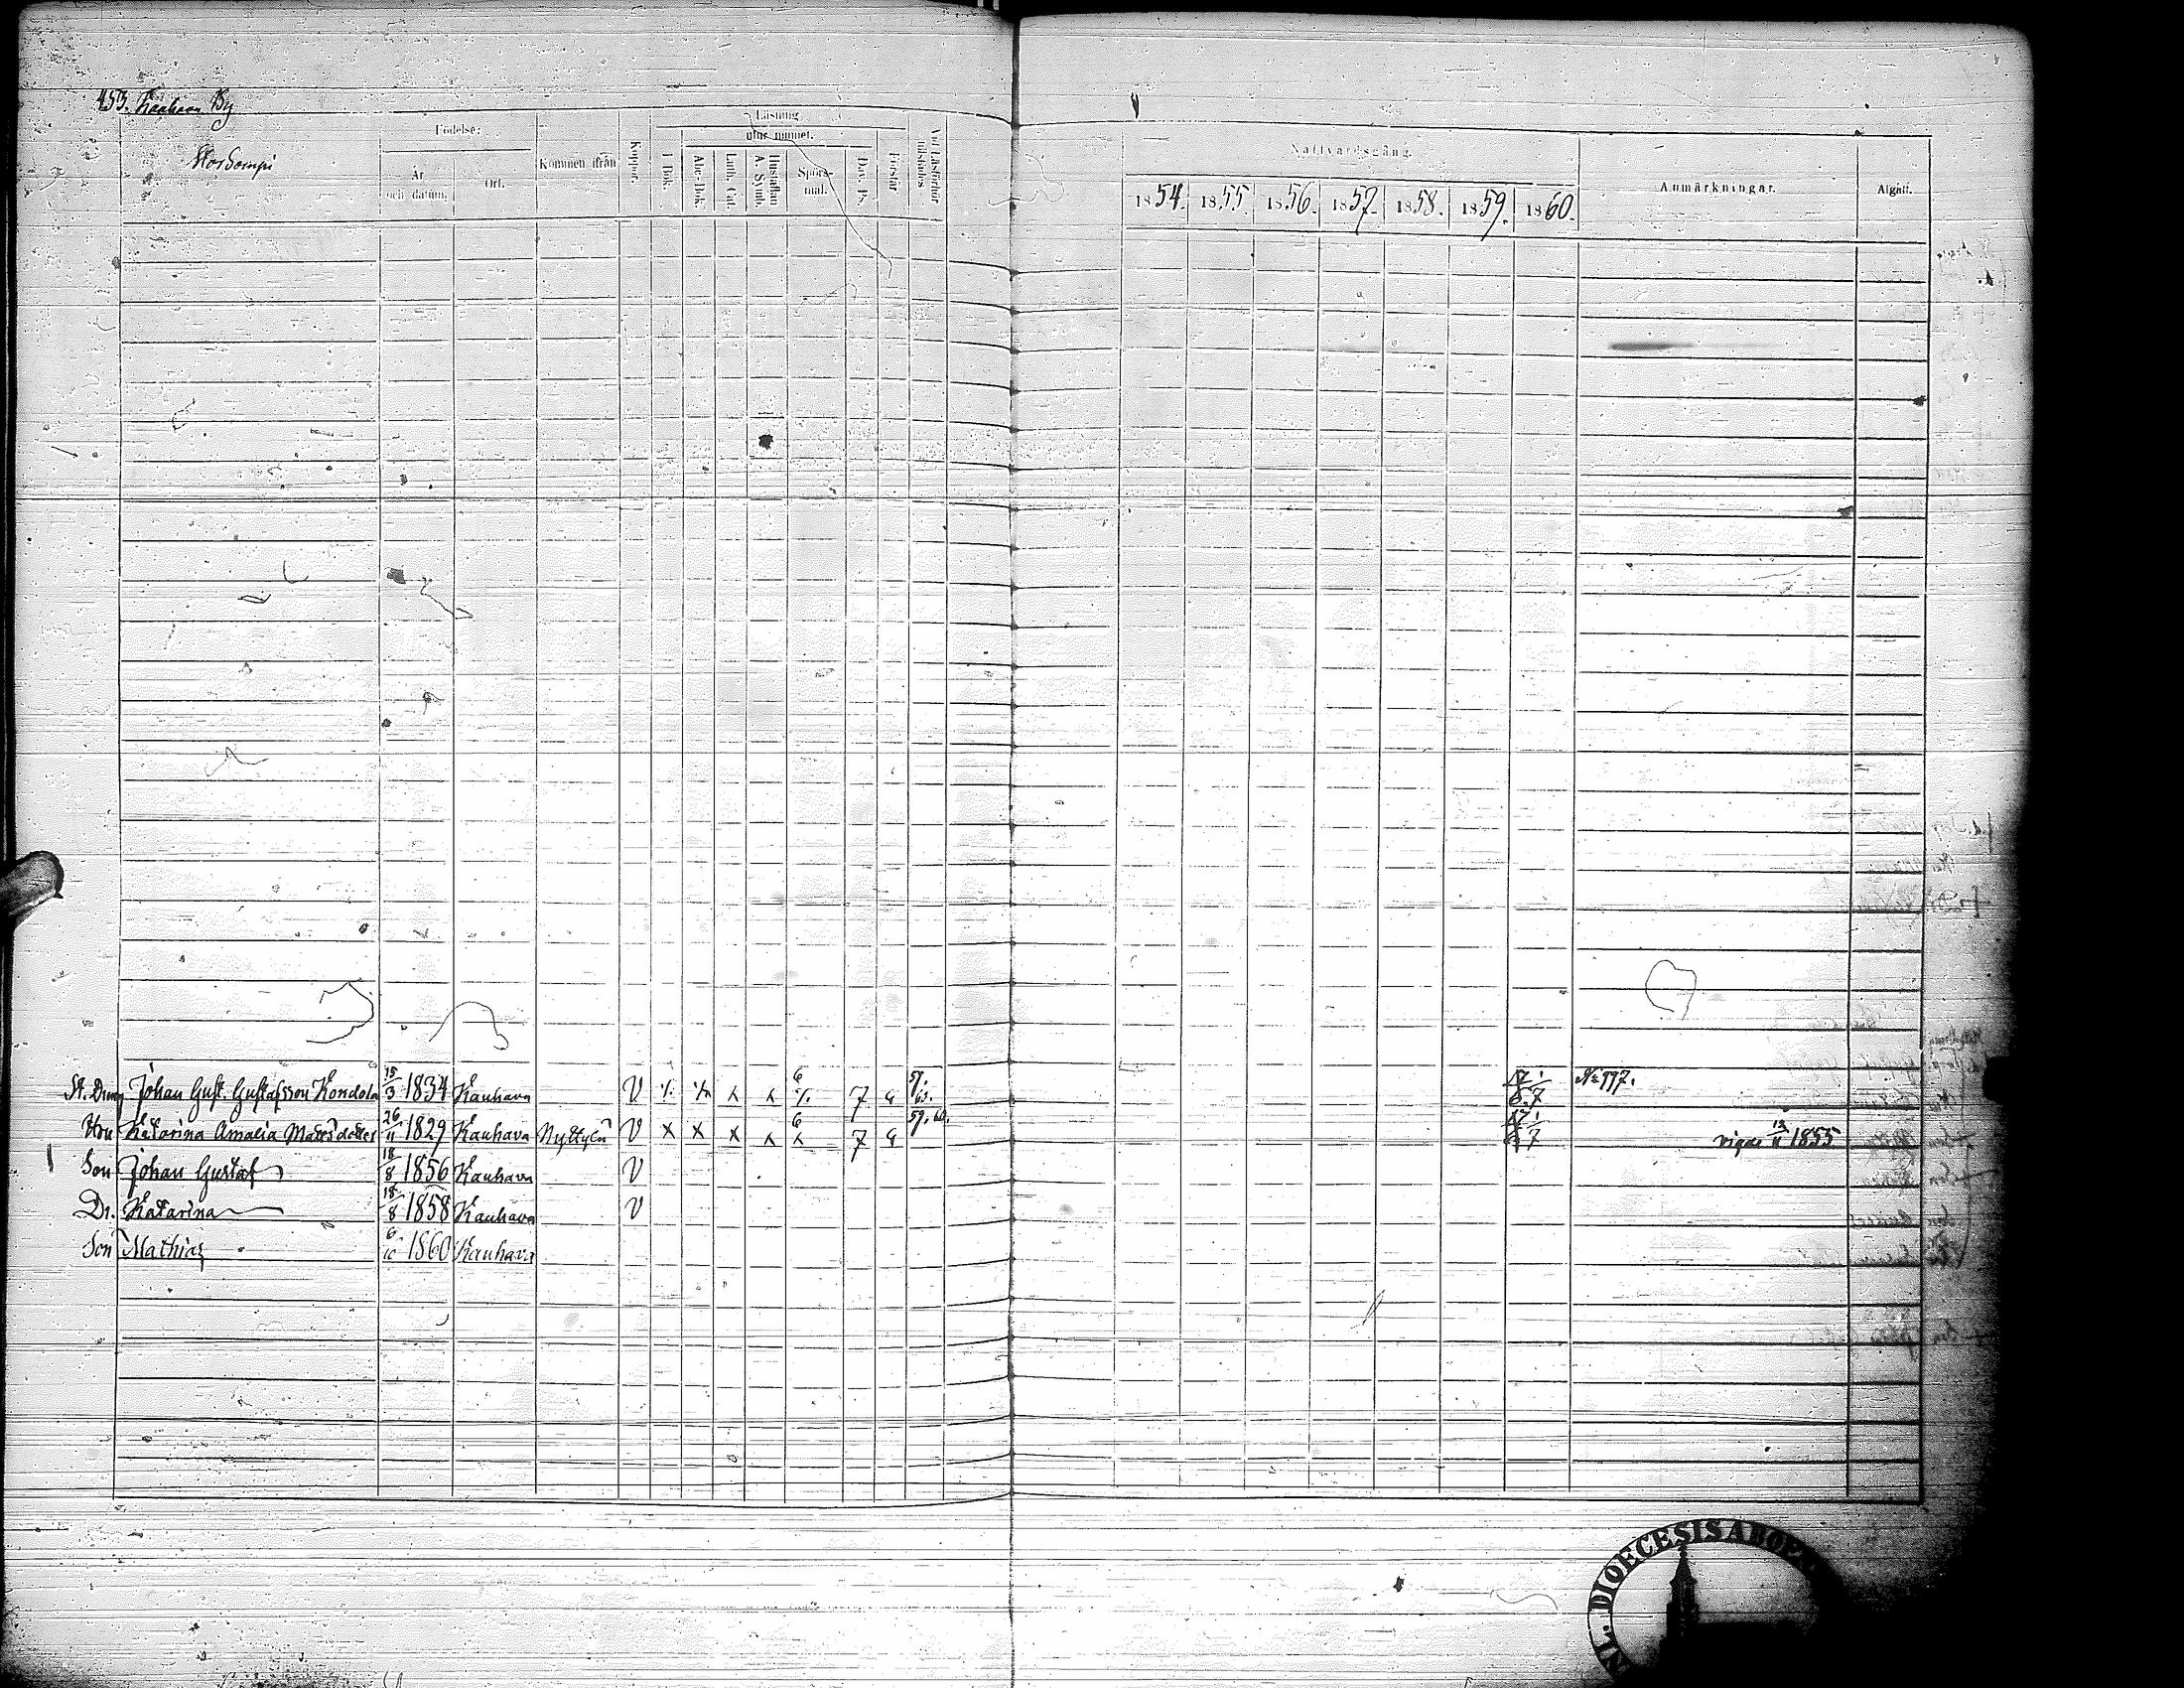 453. Kauhava By
Storsompi
Födelse:
År och datum.
Ort.
Kommen ifrån
Koppor.
Läsning
utur minnet.
I Bok.
Abc-Bok.
Luth. Cat.
Hustaflan A. Symb.
Spörsmål.
Dav. Ps.
Förstår
Vid Läsförhör tillstädes
Nattvardsgång.
1854. 1855. 1856. 1857. 1858. 1859. 1860.
Anmärkningar.
Afgått.
St. Dreng Johan Gust. Gustafsson Kondola 15/3 1834 Kauhava V 6 7 a 59. 8/7 No 997.
Hu Katarina Amalia Matts dotter 26/11 1829 Kauhava V x x x x 6 x 7 a 59. 60. 7 vigde 13/11 1855
Son Johan Gustaf 18/8 1856 Kauhava V
Dr. Katarina 18/8 1858 Kauhava V
Son Mathias 6/10 1860 Kauhava
DIOECESIS ABOE